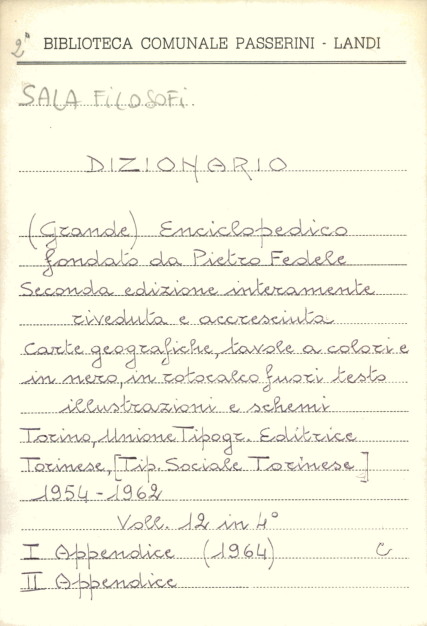 2ª BIBLIOTECA COMUNALE PASSERINI - LANDI
SALA FILOSOFI.
DIZIONARIO
(Grande) Enciclopedico
fondato da Pietro Fedele
Seconda edizione interamente
riveduta e accresciuta
Carte geografiche, tavole a colori e
in nero, in rotocalco fuori testo
illustrazioni e schemi
Torino, Unione Tipogr. Editrice
Torinese, [Tip. Sociale Torinese]
1954-1962
Voll. 12 in 4°
I Appendice (1964) C
II Appendice